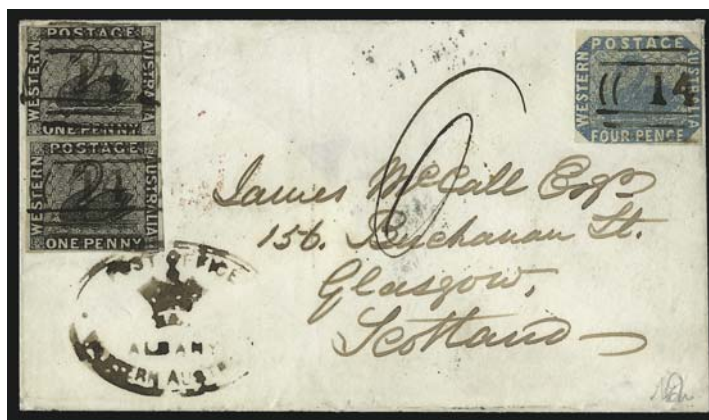 POSTAGE
WESTERN
AUSTRALIA
ONE PENNY
POSTAGE
WESTERN
AUSTRALIA
ONE PENNY
POSTAGE
WESTERN
AUSTRALIA
FOUR PENCE
14
6
James McCall Esqr
156. Buchanan St.
Glasgow,
Scotland
POST OFFICE
ALBANY
WESTERN AUST